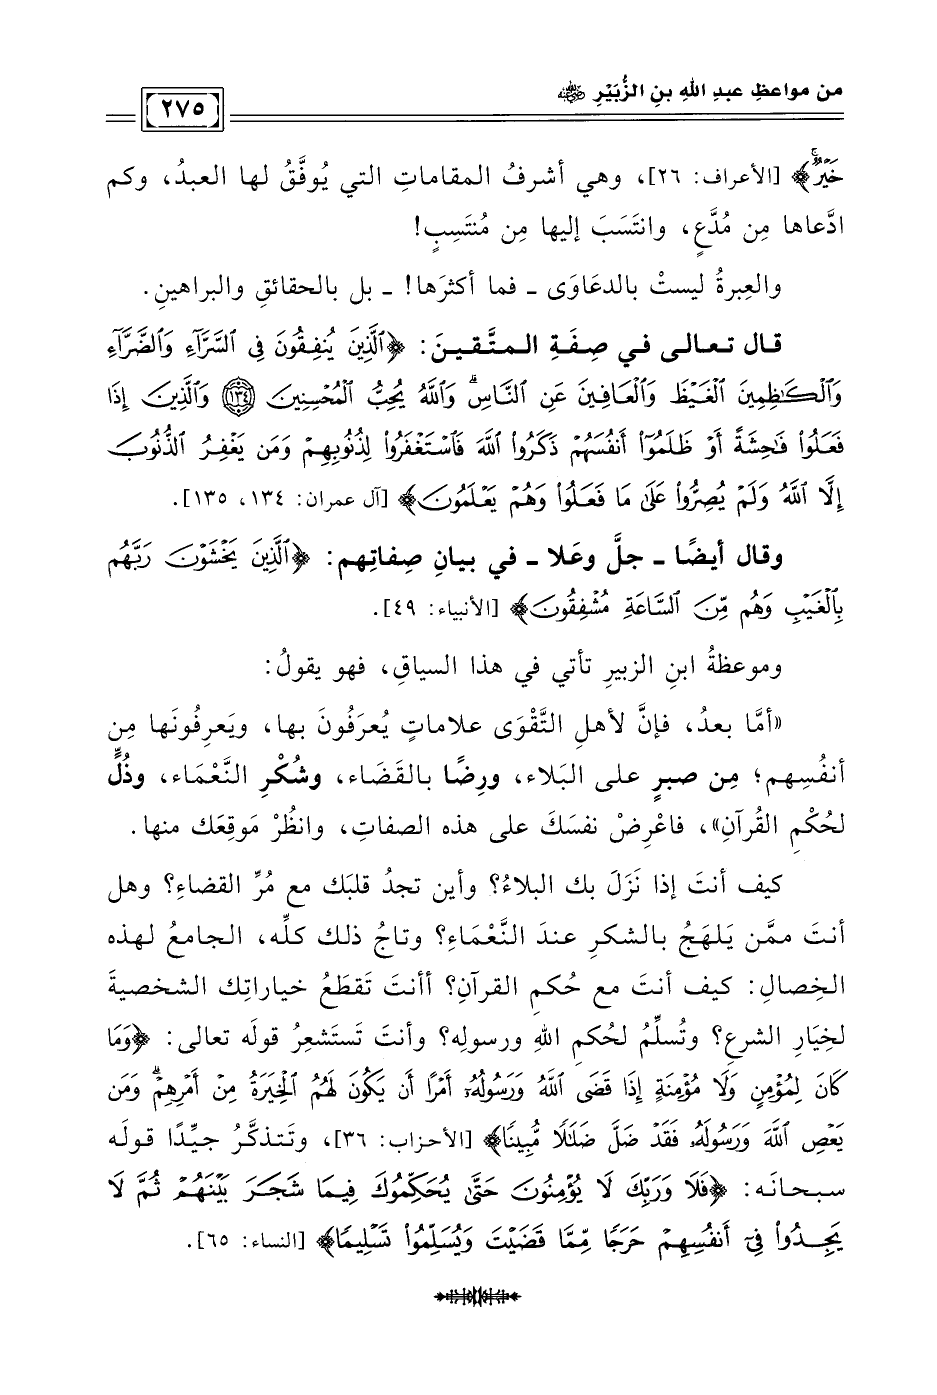 من مواعظِ عبدِ اللهِ بنِ الزُّبَيْرِ ﷺ
٢٧٥
خَيْرٌۚ﴾ [الأعراف: ٢٦]، وهي أشرفُ المقاماتِ التي يُوفَّقُ لها العبدُ، وكم
ادَّعاها مِن مُدَّعٍ، وانتَسَبَ إليها مِن مُنتَسِبٍ!
والعِبرةُ ليستْ بالدعَاوَى ـ فما أكثرَها! ـ بل بالحقائقِ والبراهينِ.
قال تعالى في صِفَةِ المتَّقينَ: ﴿ٱلَّذِينَ يُنفِقُونَ فِي ٱلسَّرَّآءِ وَٱلضَّرَّآءِ
وَٱلْكَٰظِمِينَ ٱلْغَيْظَ وَٱلْعَافِينَ عَنِ ٱلنَّاسِۗ وَٱللَّهُ يُحِبُّ ٱلْمُحْسِنِينَ ۝١٣٤ وَٱلَّذِينَ إِذَا
فَعَلُوا۟ فَٰحِشَةً أَوْ ظَلَمُوٓا۟ أَنفُسَهُمْ ذَكَرُوا۟ ٱللَّهَ فَٱسْتَغْفَرُوا۟ لِذُنُوبِهِمْ وَمَن يَغْفِرُ ٱلذُّنُوبَ
إِلَّا ٱللَّهُ وَلَمْ يُصِرُّوا۟ عَلَىٰ مَا فَعَلُوا۟ وَهُمْ يَعْلَمُونَ﴾ [آل عمران: ١٣٤، ١٣٥].
وقال أيضًا ـ جلَّ وعَلا ـ في بيانِ صِفاتِهم: ﴿ٱلَّذِينَ يَخْشَوْنَ رَبَّهُم
بِٱلْغَيْبِ وَهُم مِّنَ ٱلسَّاعَةِ مُشْفِقُونَ﴾ [الأنبياء: ٤٩].
وموعظةُ ابنِ الزبيرِ تأتي في هذا السياقِ، فهو يقولُ:
«أمَّا بعدُ، فإنَّ لأهلِ التَّقْوَى علاماتٍ يُعرَفُونَ بها، ويَعرِفُونَها مِن
أنفُسِهم؛ مِن صبرٍ على البَلاء، ورِضًا بالقَضَاء، وشُكْرِ النَّعْمَاء، وذُلٍّ
لحُكْمِ القُرآنِ»، فاعْرِضْ نفسَكَ على هذه الصفاتِ، وانظُرْ مَوقِعَك منها.
كيف أنتَ إذا نَزَلَ بك البلاءُ؟ وأين تجدُ قلبَك مع مُرِّ القضاءِ؟ وهل
أنتَ ممَّن يَلهَجُ بالشكرِ عندَ النَّعْمَاءِ؟ وتاجُ ذلك كلِّه، الجامعُ لهذه
الخِصالِ: كيف أنتَ مع حُكمِ القرآنِ؟ أأنتَ تَقطَعُ خياراتِك الشخصيةَ
لخِيَارِ الشرعِ؟ وتُسلِّمُ لحُكمِ اللهِ ورسولِه؟ وأنتَ تَستَشعِرُ قولَه تعالى: ﴿وَمَا
كَانَ لِمُؤْمِنٍ وَلَا مُؤْمِنَةٍ إِذَا قَضَى ٱللَّهُ وَرَسُولُهُۥٓ أَمْرًا أَن يَكُونَ لَهُمُ ٱلْخِيَرَةُ مِنْ أَمْرِهِمْۗ وَمَن
يَعْصِ ٱللَّهَ وَرَسُولَهُۥ فَقَدْ ضَلَّ ضَلَٰلًا مُّبِينًا﴾ [الأحزاب: ٣٦]، وتَتذكَّرُ جيِّدًا قولَه
سبحانَه: ﴿فَلَا وَرَبِّكَ لَا يُؤْمِنُونَ حَتَّىٰ يُحَكِّمُوكَ فِيمَا شَجَرَ بَيْنَهُمْ ثُمَّ لَا
يَجِدُوا۟ فِىٓ أَنفُسِهِمْ حَرَجًا مِّمَّا قَضَيْتَ وَيُسَلِّمُوا۟ تَسْلِيمًا﴾ [النساء: ٦٥].